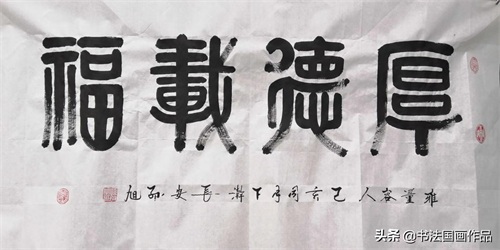 厚德載福
雅量容人己亥月下澣長安旭
头条 @书法国画作品